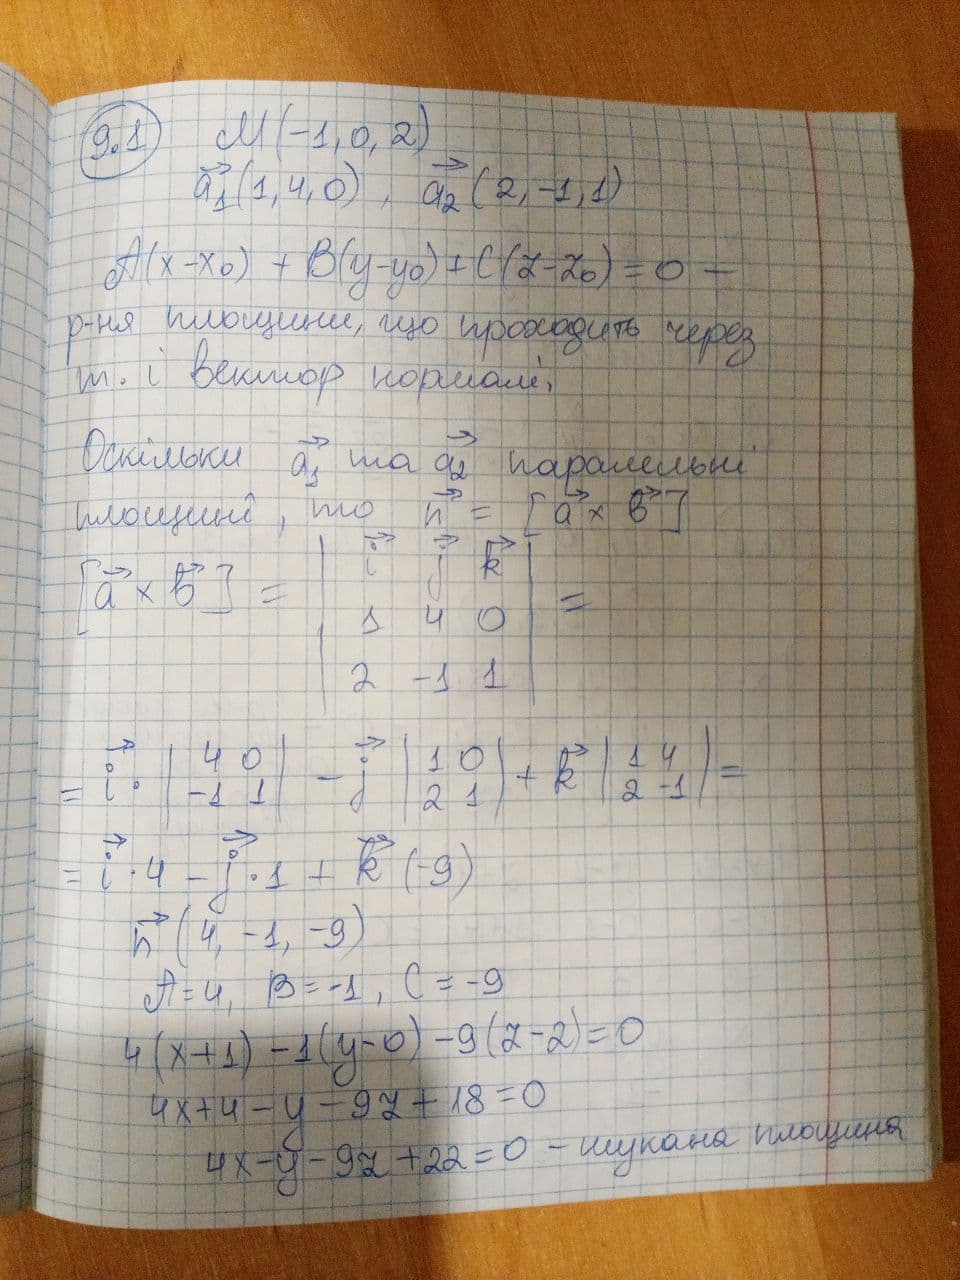 9.1 M(-1, 0, 2)
a₁⃗(1, 4, 0), a₂⃗(2, -1, 1)
A(x-x₀) + B(y-y₀) + C(z-z₀) = 0 —
р-ня площини, що проходить через
т. і вектор нормалі.
Оскільки a₁⃗ та a₂⃗ паралельні
площині, то n⃗ = [a⃗ × b⃗]
[a⃗ × b⃗] = | i⃗ j⃗ k⃗ |
| 1 4 0 | =
| 2 -1 1 |
= i⃗ · | 4 0 | - j⃗ | 1 0 | + k⃗ | 1 4 | =
| -1 1 | | 2 1 | | 2 -1 |
= i⃗ · 4 - j⃗ · 1 + k⃗ (-9)
n⃗ (4, -1, -9)
A = 4, B = -1, C = -9
4(x+1) - 1(y-0) - 9(z-2) = 0
4x + 4 - y - 9z + 18 = 0
4x - y - 9z + 22 = 0 - шукана площина